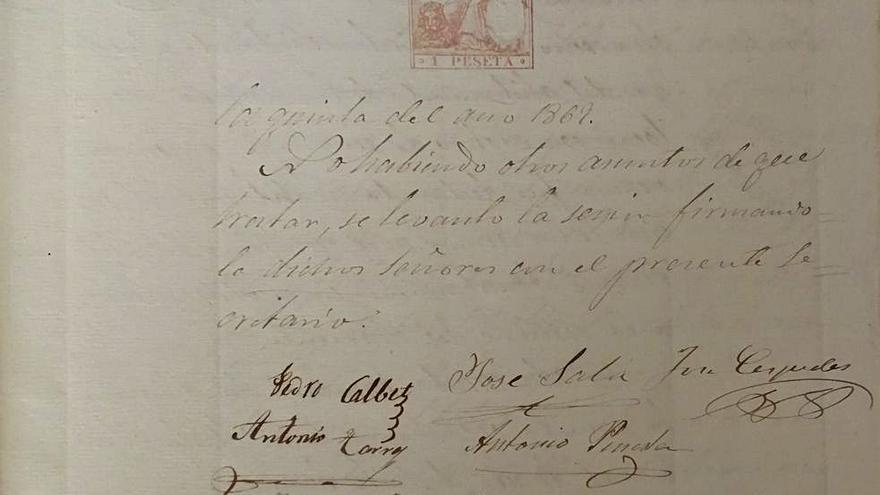 1 PESETA
la quinta del año 1869.
No habiendo otros asuntos de que
tratar, se levantó la sesión firmando-
lo dichos Señores con el presente Se-
cretario.
Pedro Calbet José Sala José
Antonio Torroy Antonio Pineda